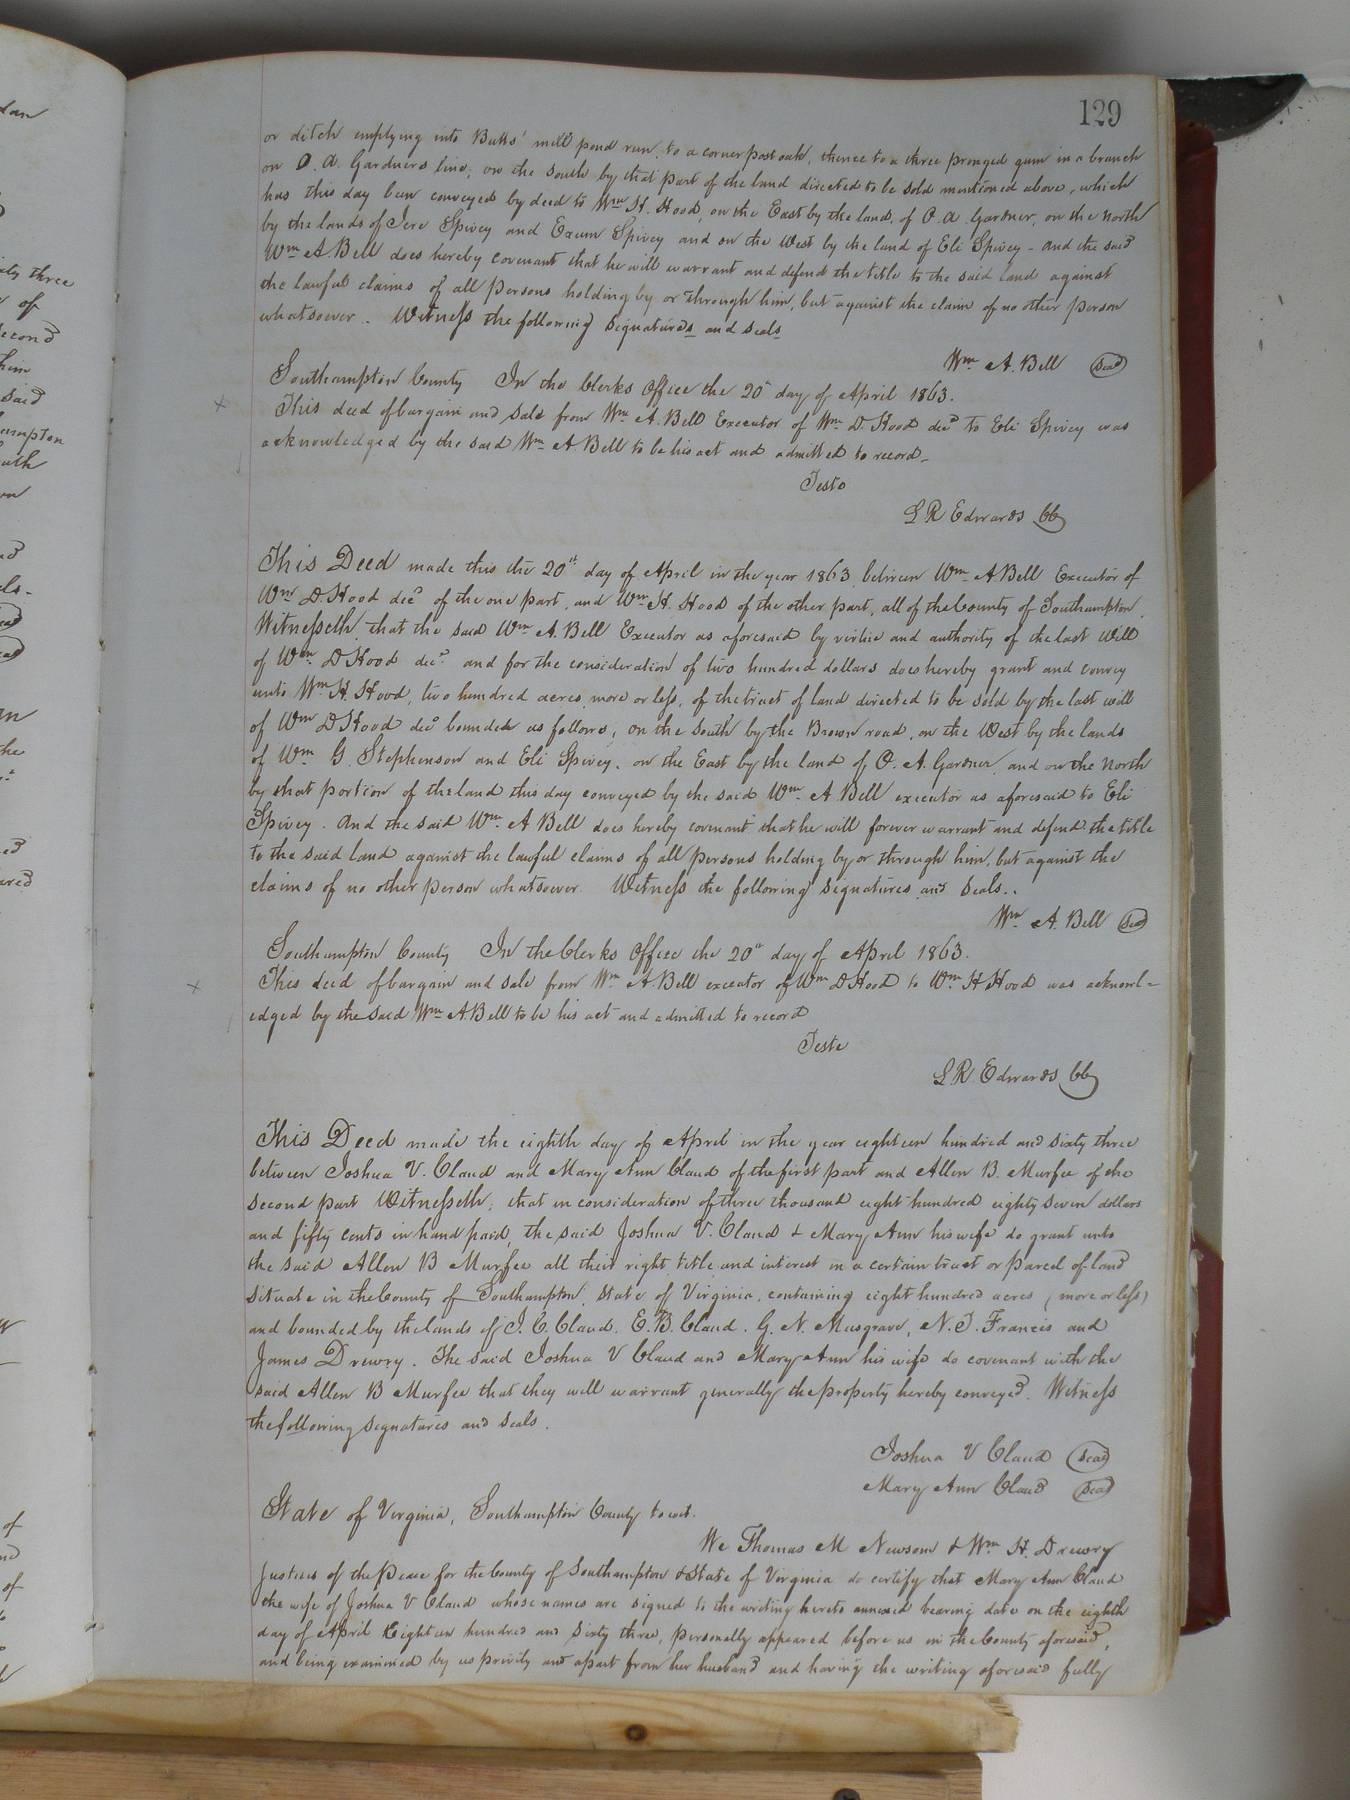 129
or ditch emptying into Butts' mill pond run, to a corner post oak, thence to a three pronged gum in a branch
on O. A. Gardners line, on the South by that part of the land directed to be sold mentioned above, which
has this day been conveyed by deed to Wm H. Hood, on the East by the land of O. A. Gardner, on the North
by the lands of Jere Spivey and Exum Spivey and on the West by the land of Eli Spivey - And the said
Wm A. Bell does hereby covenant that he will warrant and defend the title to the said land against
the lawful claims of all persons holding by or through him, but against the claim of no other person
whatsoever. Witness the following signatures and seals
Wm A. Bell Seal
Southampton County In the Clerks Office the 20th day of April 1863.
This deed of bargain and sale from Wm A. Bell Executor of Wm D. Hood decd to Eli Spivey was
acknowledged by the said Wm A. Bell to be his act and admitted to record -
Teste
L R Edwards CC
This Deed made this the 20th day of April in the year 1863, between Wm A Bell Executor of
Wm D. Hood decd of the one part, and Wm H. Hood of the other part, all of the County of Southampton,
Witnesseth, that the said Wm A. Bell Executor as aforesaid by virtue and authority of the last Will
of Wm D Hood decd and for the consideration of two hundred dollars does hereby grant and convey
unto Wm H. Hood, two hundred acres, more or less, of the tract of land directed to be sold by the last will
of Wm D Hood decd bounded as follows; on the South by the Brown road, on the West by the lands
of Wm G. Stephenson and Eli Spivey, on the East by the land of O. A. Gardner, and on the North
by that portion of the land this day conveyed by the said Wm A Bell executor as aforesaid to Eli
Spivey. And the said Wm A Bell does hereby covenant that he will forever warrant and defend the title
to the said land against the lawful claims of all persons holding by or through him, but against the
claims of no other person whatsoever. Witness the following signatures and seals..
Wm A. Bell Seal
Southampton County In the Clerks Office the 20th day of April 1863.
This deed of bargain and sale from Wm A. Bell executor of Wm D Hood to Wm H Hood was acknowl=
edged by the said Wm A. Bell to be his act and admitted to record
Teste
L R. Edwards CC
This Deed made the eighth day of April in the year eighteen hundred and sixty three
between Joshua V. Claud and Mary Ann Claud of the first part and Allen B. Murfee of the
second part Witnesseth; that in consideration of three thousand eight hundred eighty seven dollars
and fifty cents in hand paid, the said Joshua V. Claud & Mary Ann his wife do grant unto
the said Allen B Murfee all their right title and interest in a certain tract or parcel of land
situate in the County of Southampton, State of Virginia, containing eight hundred acres (more or less)
and bounded by the lands of J. C. Claud, E. B. Claud, G. N. Musgrave, N. T. Francis and
James Drewry. The said Joshua V Claud and Mary Ann his wife do covenant with the
said Allen B Murfee that they will warrant generally the property hereby conveyed. Witness
the following signatures and seals.
Joshua V Claud Seal
Mary Ann Claud Seal
State of Virginia, Southampton County to wit.
We Thomas M Newsom & Wm H. Drewry
Justices of the Peace for the County of Southampton & State of Virginia do certify that Mary Ann Claud
the wife of Joshua V Claud whose names are signed to the writing hereto annexed bearing date on the eighth
day of April Eighteen hundred and sixty three, personally appeared before us in the County aforesaid,
and being examined by us privily and apart from her husband and having the writing aforesaid fully